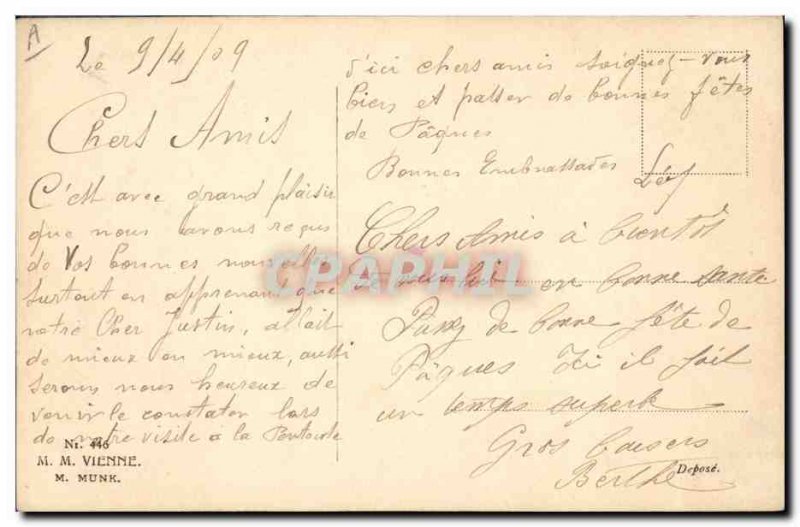 A
Le 9/4/09
Chers Amis
C'est avec grand plaisir
que nous avons reçus
de Vos bonnes nouvelle
surtout en apprenant que
notre Cher Justin, allait
de mieux en mieux, aussi
serons nous heureux de
venir le constater lors
de notre visite à la Pentecôte
Nr. 446
M. M. VIENNE.
M. MUNK.
d'ici chers amis soignez-vous
bien et passer de bonnes fêtes
de Pâques
Bonnes Embrassades
Chers Amis à bientôt
en bonne santé
Passez de bonne fête de
Pâques Ici il fait
un temps superbe
Gros baisers
Berthe
Deposé.
CPAPHIL